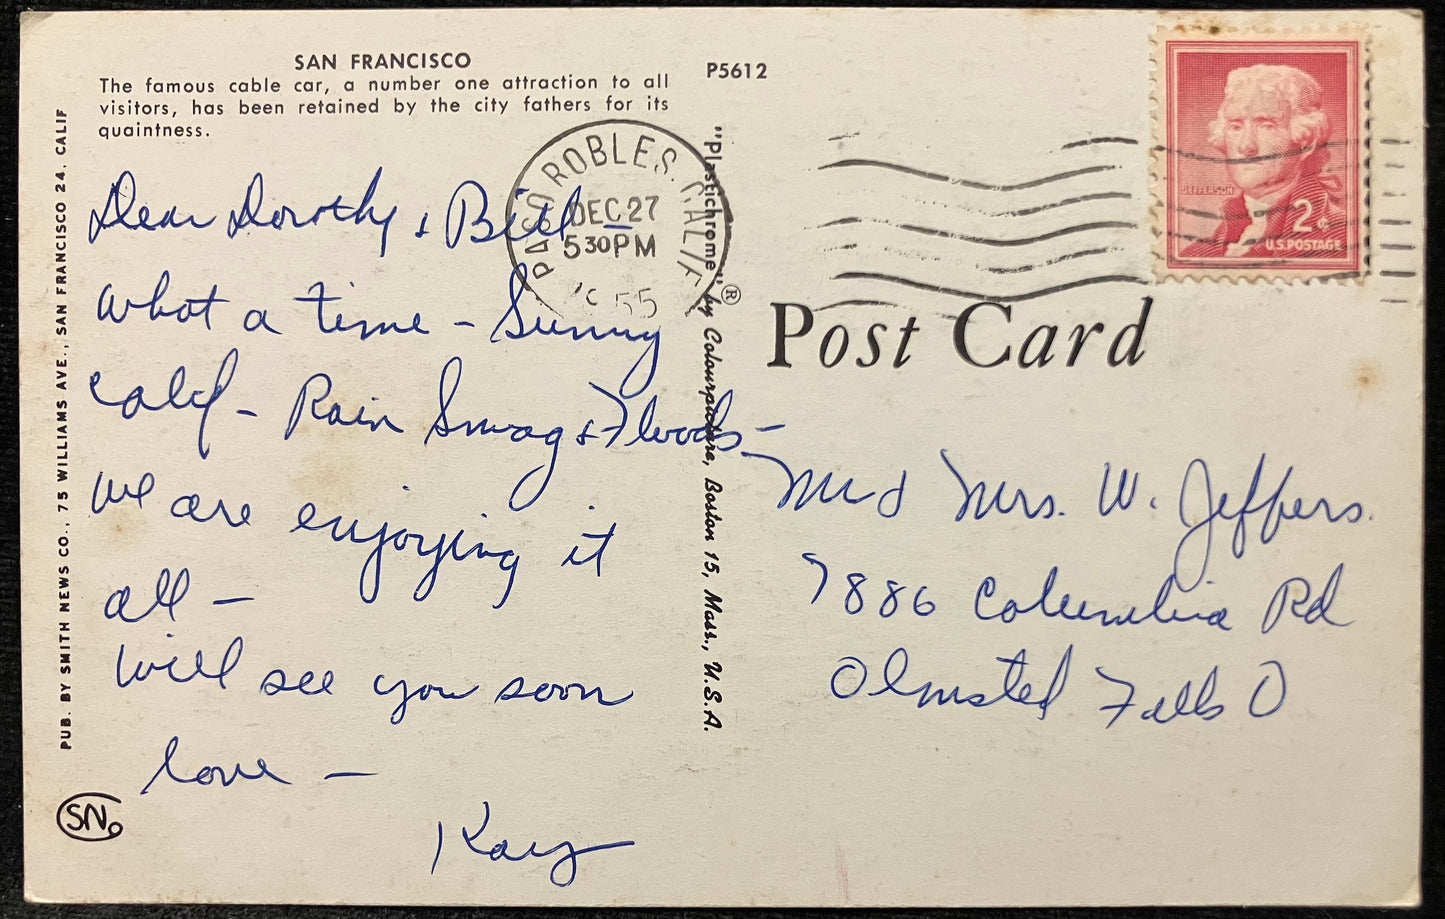 SAN FRANCISCO
The famous cable car, a number one attraction to all
visitors, has been retained by the city fathers for its
quaintness.
P5612
PUB. BY SMITH NEWS CO., 75 WILLIAMS AVE., SAN FRANCISCO 24, CALIF
Dear Dorothy & Bill
What a time - Sunny
Calif - Rain Smog & Floods -
We are enjoying it
all -
Will see you soon
love -
Kay
SN
PASO ROBLES, CALIF
DEC 27
5 30 PM
55
"Plastichrome" ® by Colourpicture, Boston 15, Mass., U.S.A.
JEFFERSON
2¢
U.S. POSTAGE
Post Card
M & Mrs. W. Jeffers.
7886 Columbia Rd
Olmsted Falls O